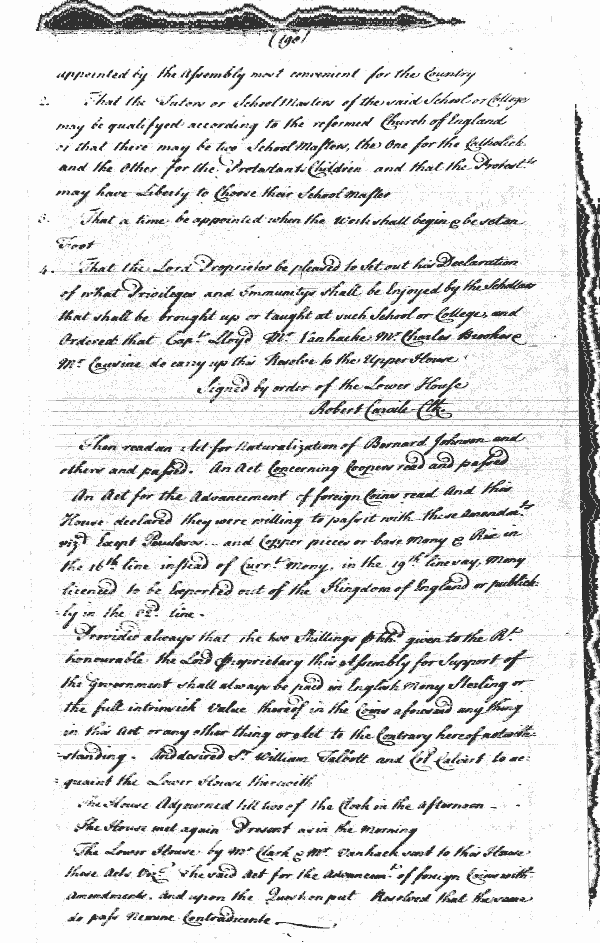 (190)
appointed by the Assembly most convenient for the Country
2. That the Tutors or School Masters of the said School or College
may be qualifyed according to the reformed Church of England
or that there may be two School Masters, the One for the Catholick
and the Other for the Protestant Children and that the Protest.ts
may have Liberty to Choose their School Master
3. That a time be appointed when the Work shall begin & be set on
Foot
4. That the Lord Proprietor be pleased to Set out his Declaration
of what Priviledges and Immunitys shall be Enjoyed by the Schollars
that shall be brought up or taught at such School or College, and
Ordered that Cap.t Lloyd M.r Vanhacke M.r Charles Brookes &
M.r Causine do carry up this Resolve to the Upper House
Signed by order of the Lower House
Robert Carvile Clk.
Then read an Act for Naturalization of Bernard Johnson and
others and passed. An Act Concerning Coopers read and passed
An Act for the Advancement of foreign Coins read And this
House declared they were willing to pass it with these Amendm.ts
viz.t Except ... and Copper pieces or base Mony & Rix in
the 16th line instead of Curr.t Mony, in the 19th line say, Mony
licenced to be Exported out of the Kingdom of England or publick-
ly in the 22.d line.
Provided always that the two Shillings P hh.d given to the R.t
honourable the Lord Proprietary this Assembly for Support of
the Government shall always be paid in English Mony Sterling or
the full intrinsick Value thereof in the Coins aforesaid any thing
in this Act or any other thing or Act to the Contrary hereof notwith-
standing. And desired S.r William Talbott and Col Calvert to ac-
quaint the Lower House therewith
The House Adjourned till two of the Clock in the Afternoon
The House met again Present as in the Morning
The Lower House by M.r Clark & M.r Vanhack sent to this House
these Acts Viz.t The said Act for the Advancem.t of foreign Coins with
Amendments. and upon the Question put Resolved that the same
do pass Nemine Contradicente